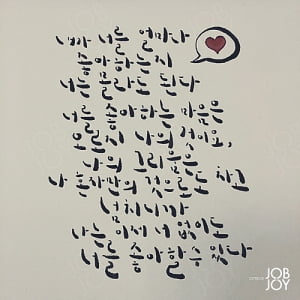 내가 너를 얼마나
좋아하는지
너는 몰라도 된다
너를 좋아하는 마음은
오로지 나의 것이요,
나의 그리움은
나 혼자만의 것으로도 차고
넘치니까
나는 이제 너 없이도
너를 좋아할 수 있다
JOB
JOY